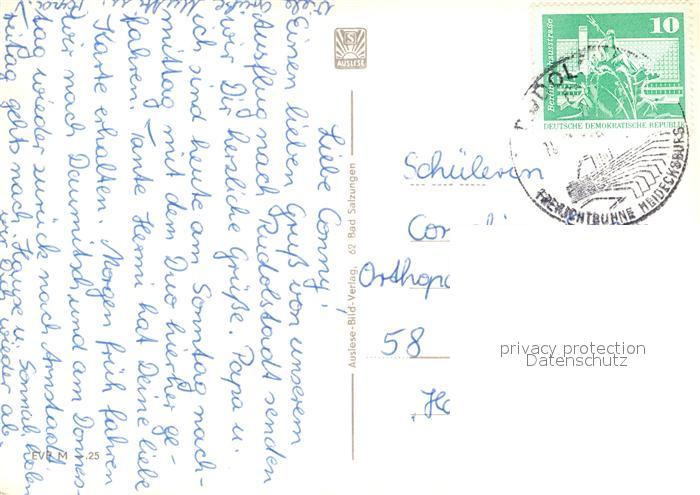 Liebe Conny!
Einen lieben Gruß von unserem
Ausflug nach Rudolstadt senden
wir Dir herzliche Grüße. Papa u.
ich sind heute am Sonntag nach-
mittag mit dem Duo hierher ge-
fahren. Tante Henni hat Deine liebe
Karte erhalten. Morgen früh fahren
wir nach Daumitsch und am Donners-
tag wieder zurück nach Arnstadt.
Freitag geht nach Hause u. Sonnab. holen
wir Dich wieder ab.
Viele Grüße
Mutti u. Papa!
S
AUSLESE
Auslese-Bild-Verlag, 62 Bad Salzungen
EVP M -.25
10
Berlin
DEUTSCHE DEMOKRATISCHE REPUBLIK
RUDOL
FREILICHTBÜHNE HEIDECKSBURG
Schülerin
Orthopä
58
privacy protection
Datenschutz